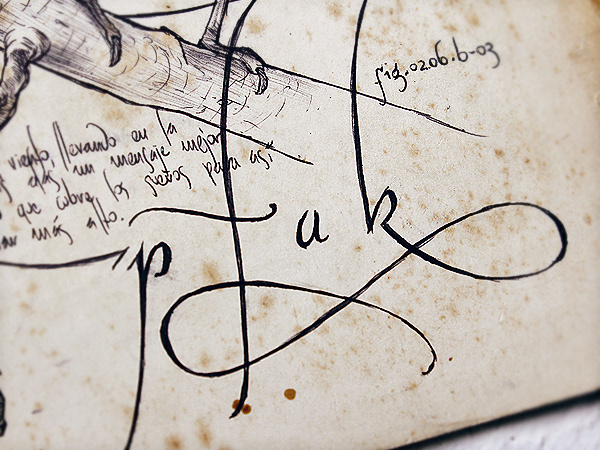 fig.0206.b-03
viento, llevando en la
un mensaje mejor
que cobra los para así
más allá.
pTak